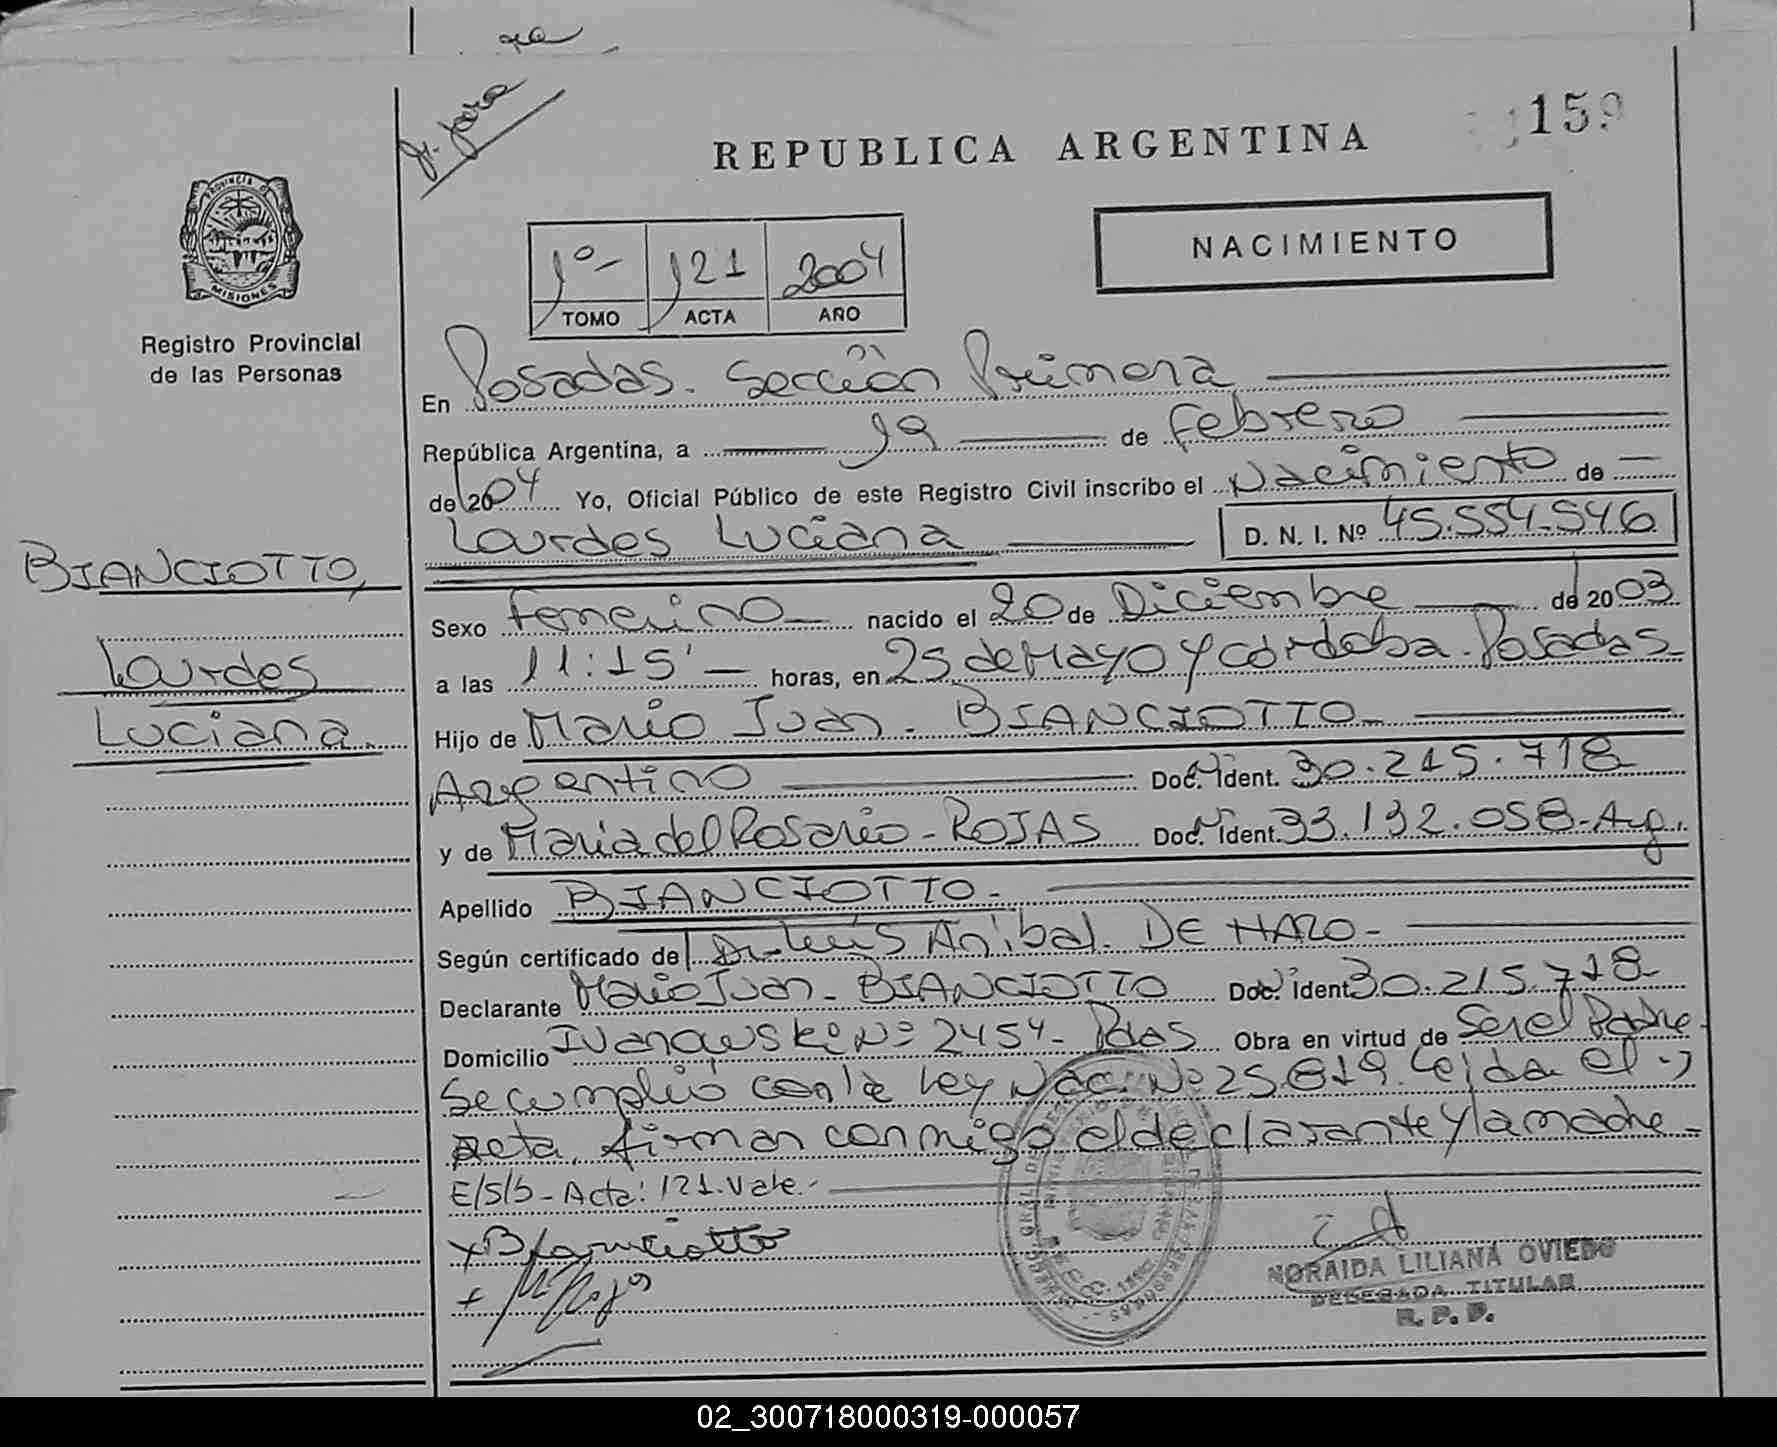 159
REPUBLICA ARGENTINA
NACIMIENTO
PROVINCIA D
MISIONES
Registro Provincial
de las Personas
1º- 121 2004
TOMO ACTA AÑO
En Posadas. Sección Primera
República Argentina, a 19 de Febrero
de 2004 Yo, Oficial Público de este Registro Civil inscribo el Nacimiento de
Lourdes Luciana D. N. I. Nº 45.554.546
BIANCIOTTO,
Lourdes
Luciana.
Sexo femenino nacido el 20 de Diciembre de 2003
a las 11:15' horas, en 25 de Mayo y Córdoba. Posadas
Hijo de Mario Juan. BIANCIOTTO
Argentino Doc. Ident. 30.215.718
y de María del Rosario - ROJAS Doc. Ident. 33.132.058-Arg.
Apellido BIANCIOTTO-
Según certificado del Dr. Luis Anibal. DE HARO-
Declarante Mario Juan. BIANCIOTTO Doc. Ident. 30.215.718
Domicilio Nº 2454- Pdas Obra en virtud de Ser el Padre
Se cumplió con la Ley Nac. Nº 25.819. Leída el
acta, firman conmigo el declarante y la madre-
E/S/b- Acta: 121. Vale.-
Bianciotto
NORAIDA LILIANA OVIEDO
DELEGADA TITULAR
R. P. P.
02_300718000319-000057